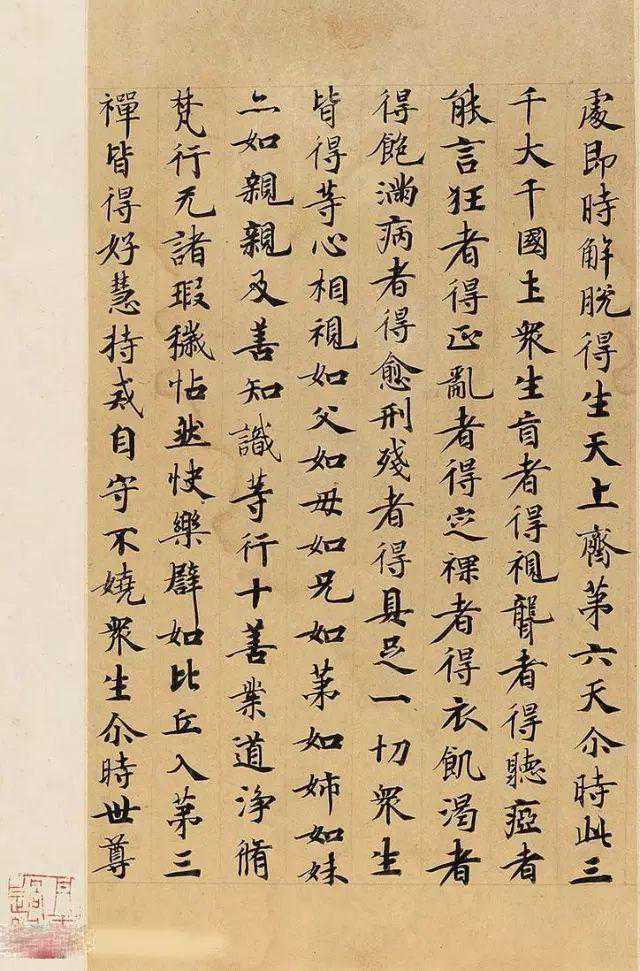 處即時解脫得生天上齊第六天尒時此三
千大千國土眾生盲者得視聾者得聽瘂者
能言狂者得正亂者得定裸者得衣飢渴者
得飽滿病者得愈刑殘者得具足一切眾生
皆得等心相視如父如母如兄如弟如姉如妹
亦如親親及善知識等行十善業道淨脩
梵行无諸瑕穢恬然快樂譬如比丘入第三
禪皆得好慧持戒自守不嬈眾生尒時世尊